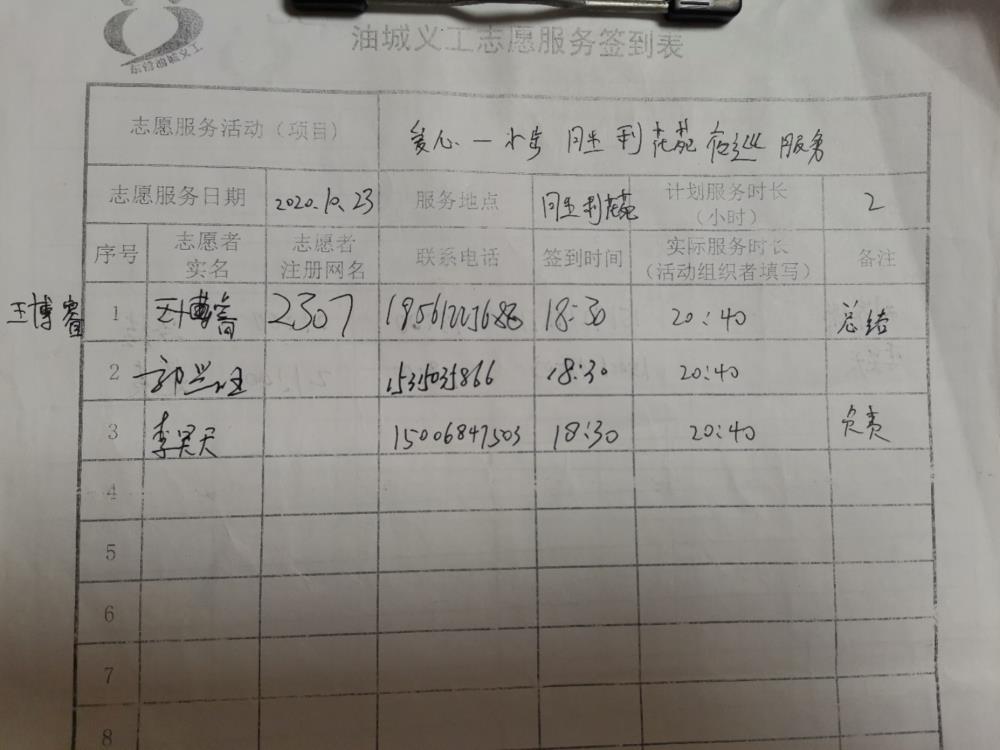 油城义工志愿服务签到表
志愿服务活动（项目） 爱心一小步 胜利花苑夜巡服务
志愿服务日期 2020.10.23 服务地点 胜利花苑 计划服务时长（小时） 2
序号 志愿者实名 志愿者注册网名 联系电话 签到时间 实际服务时长（活动组织者填写） 备注
王博睿 1 王博睿 2307 18:30 20:40 总结
2 郭兴旺 18:30 20:40
3 李昊天 15006847503 18:30 20:40 负责
4
5
6
7
8